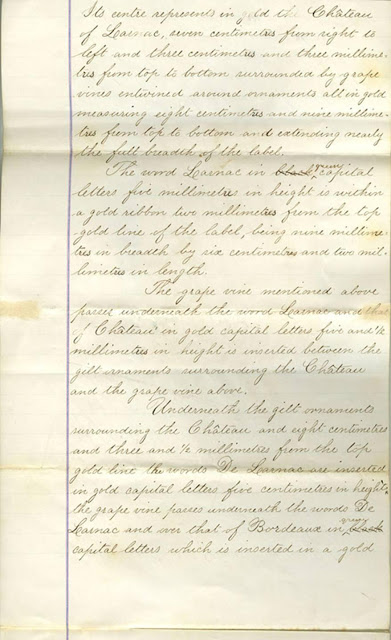 Its centre represents in gold the Château
of Larnac, seven centimetres from right to
left and three centimetres and three millime-
tres from top to bottom surrounded by grape
vines entwined around ornaments all in gold
measuring eight centimetres and nine millime-
tres from top to bottom and extending nearly
the full breadth of the label.
The word Larnac in black capital
letters five millimetres in height is within
a gold ribbon two millimetres from the top
gold line of the label, being nine millime-
tres in breadth by six centimetres and two mil-
limetres in length.
The grape vine mentioned above
passes underneath the word Larnac and that
of Château in gold capital letters five and ½
millimetres in height is inserted between the
gilt ornaments surrounding the Château
and the grape vine above.
Underneath the gilt ornaments
surrounding the Château and eight centimetres
and three and ½ millimetres from the top
gold line the words De Larnac are inserted
in gold capital letters five centimetres in height,
the grape vine passes underneath the words De
Larnac and over that of Bordeaux in black
capital letters which is inserted in a gold